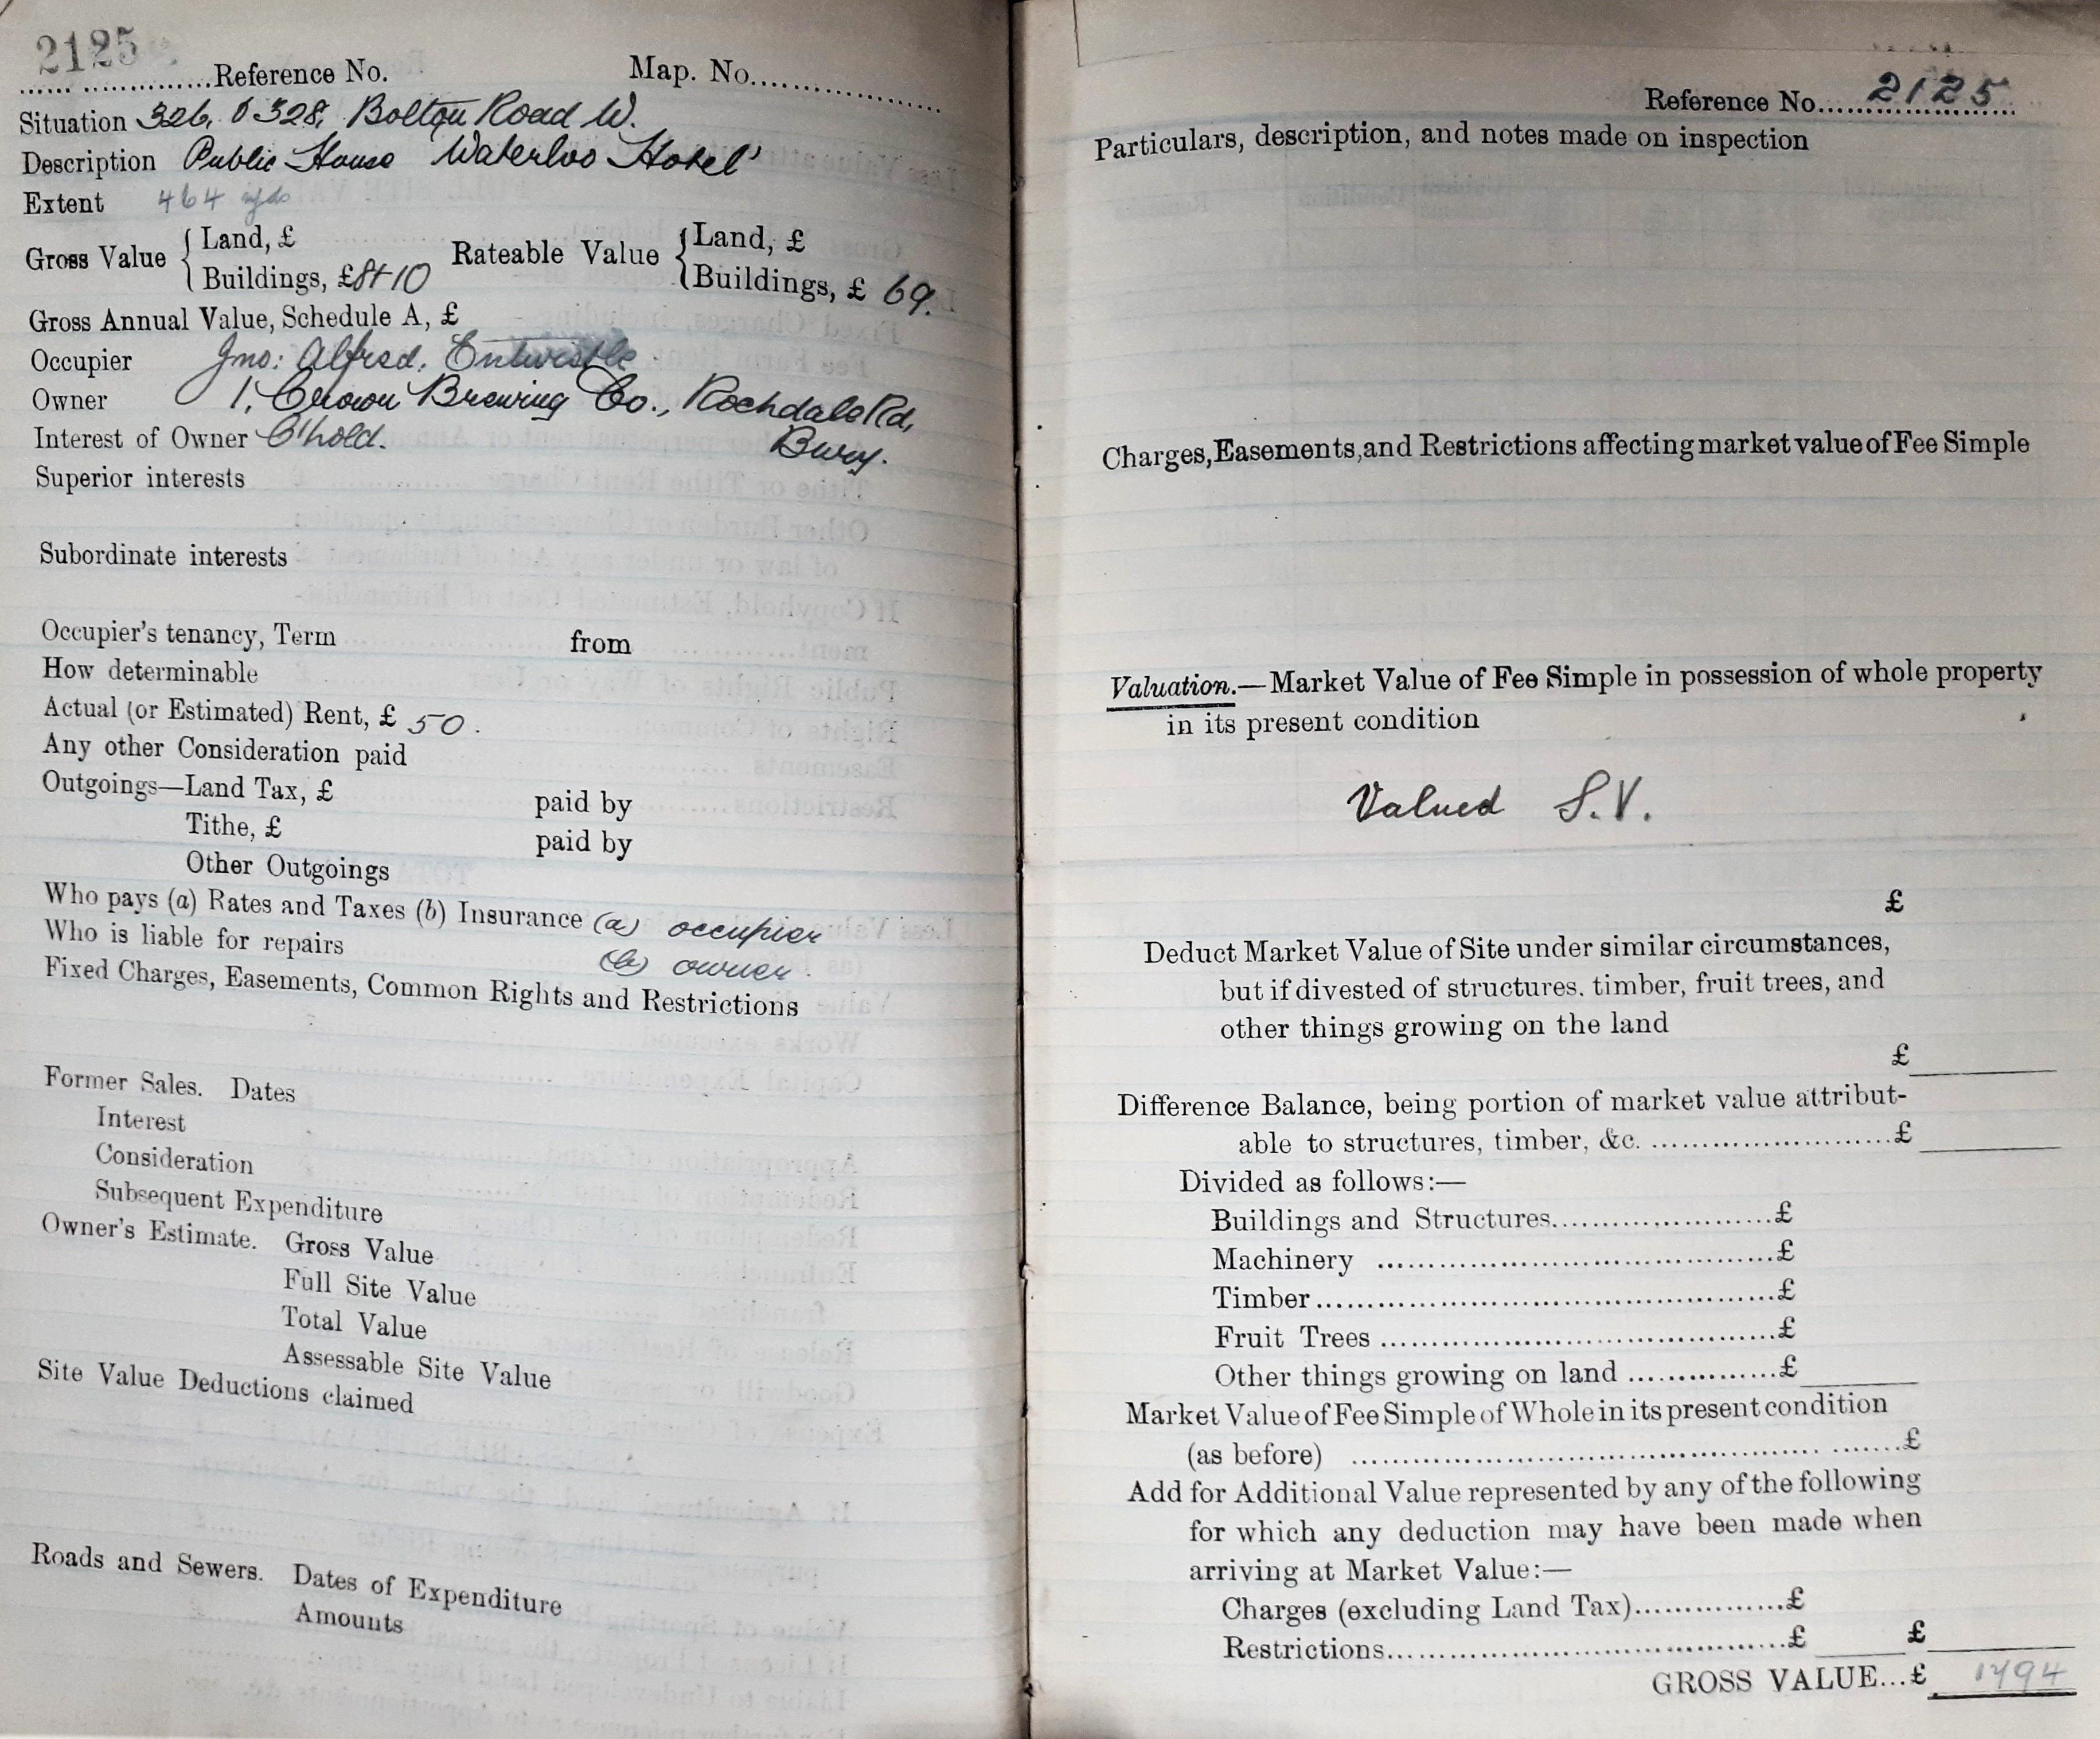 2125
...............Reference No. Map. No...................
Situation 326, & 328, Bolton Road W.
Description Public House Waterloo Hotel'
Extent 464 yds
Gross Value { Land, £
Buildings, £84 10
Rateable Value { Land, £
Buildings, £ 69.
Gross Annual Value, Schedule A, £
Occupier Jno: Alfred. Entwistle
Owner 1, Crown Brewing Co., Rochdale Rd,
Bury.
Interest of Owner C'hold.
Superior interests
Subordinate interests
Occupier's tenancy, Term from
How determinable
Actual (or Estimated) Rent, £ 50.
Any other Consideration paid
Outgoings—Land Tax, £ paid by
Tithe, £ paid by
Other Outgoings
Who pays (a) Rates and Taxes (b) Insurance (a) occupier
Who is liable for repairs (b) owner.
Fixed Charges, Easements, Common Rights and Restrictions
Former Sales. Dates
Interest
Consideration
Subsequent Expenditure
Owner's Estimate. Gross Value
Full Site Value
Total Value
Assessable Site Value
Site Value Deductions claimed
Roads and Sewers. Dates of Expenditure
Amounts
Reference No. 2125
Particulars, description, and notes made on inspection
Charges, Easements, and Restrictions affecting market value of Fee Simple
Valuation.—Market Value of Fee Simple in possession of whole property
in its present condition
Valued S.V.
£
Deduct Market Value of Site under similar circumstances,
but if divested of structures. timber, fruit trees, and
other things growing on the land
£
Difference Balance, being portion of market value attribut-
able to structures, timber, &c. ..........................£
Divided as follows:—
Buildings and Structures........................£
Machinery ..........................................£
Timber................................................£
Fruit Trees ..........................................£
Other things growing on land ................£
Market Value of Fee Simple of Whole in its present condition
(as before) ........................................................£
Add for Additional Value represented by any of the following
for which any deduction may have been made when
arriving at Market Value:—
Charges (excluding Land Tax)................£
Restrictions..........................................£ £
GROSS VALUE...£ 1794